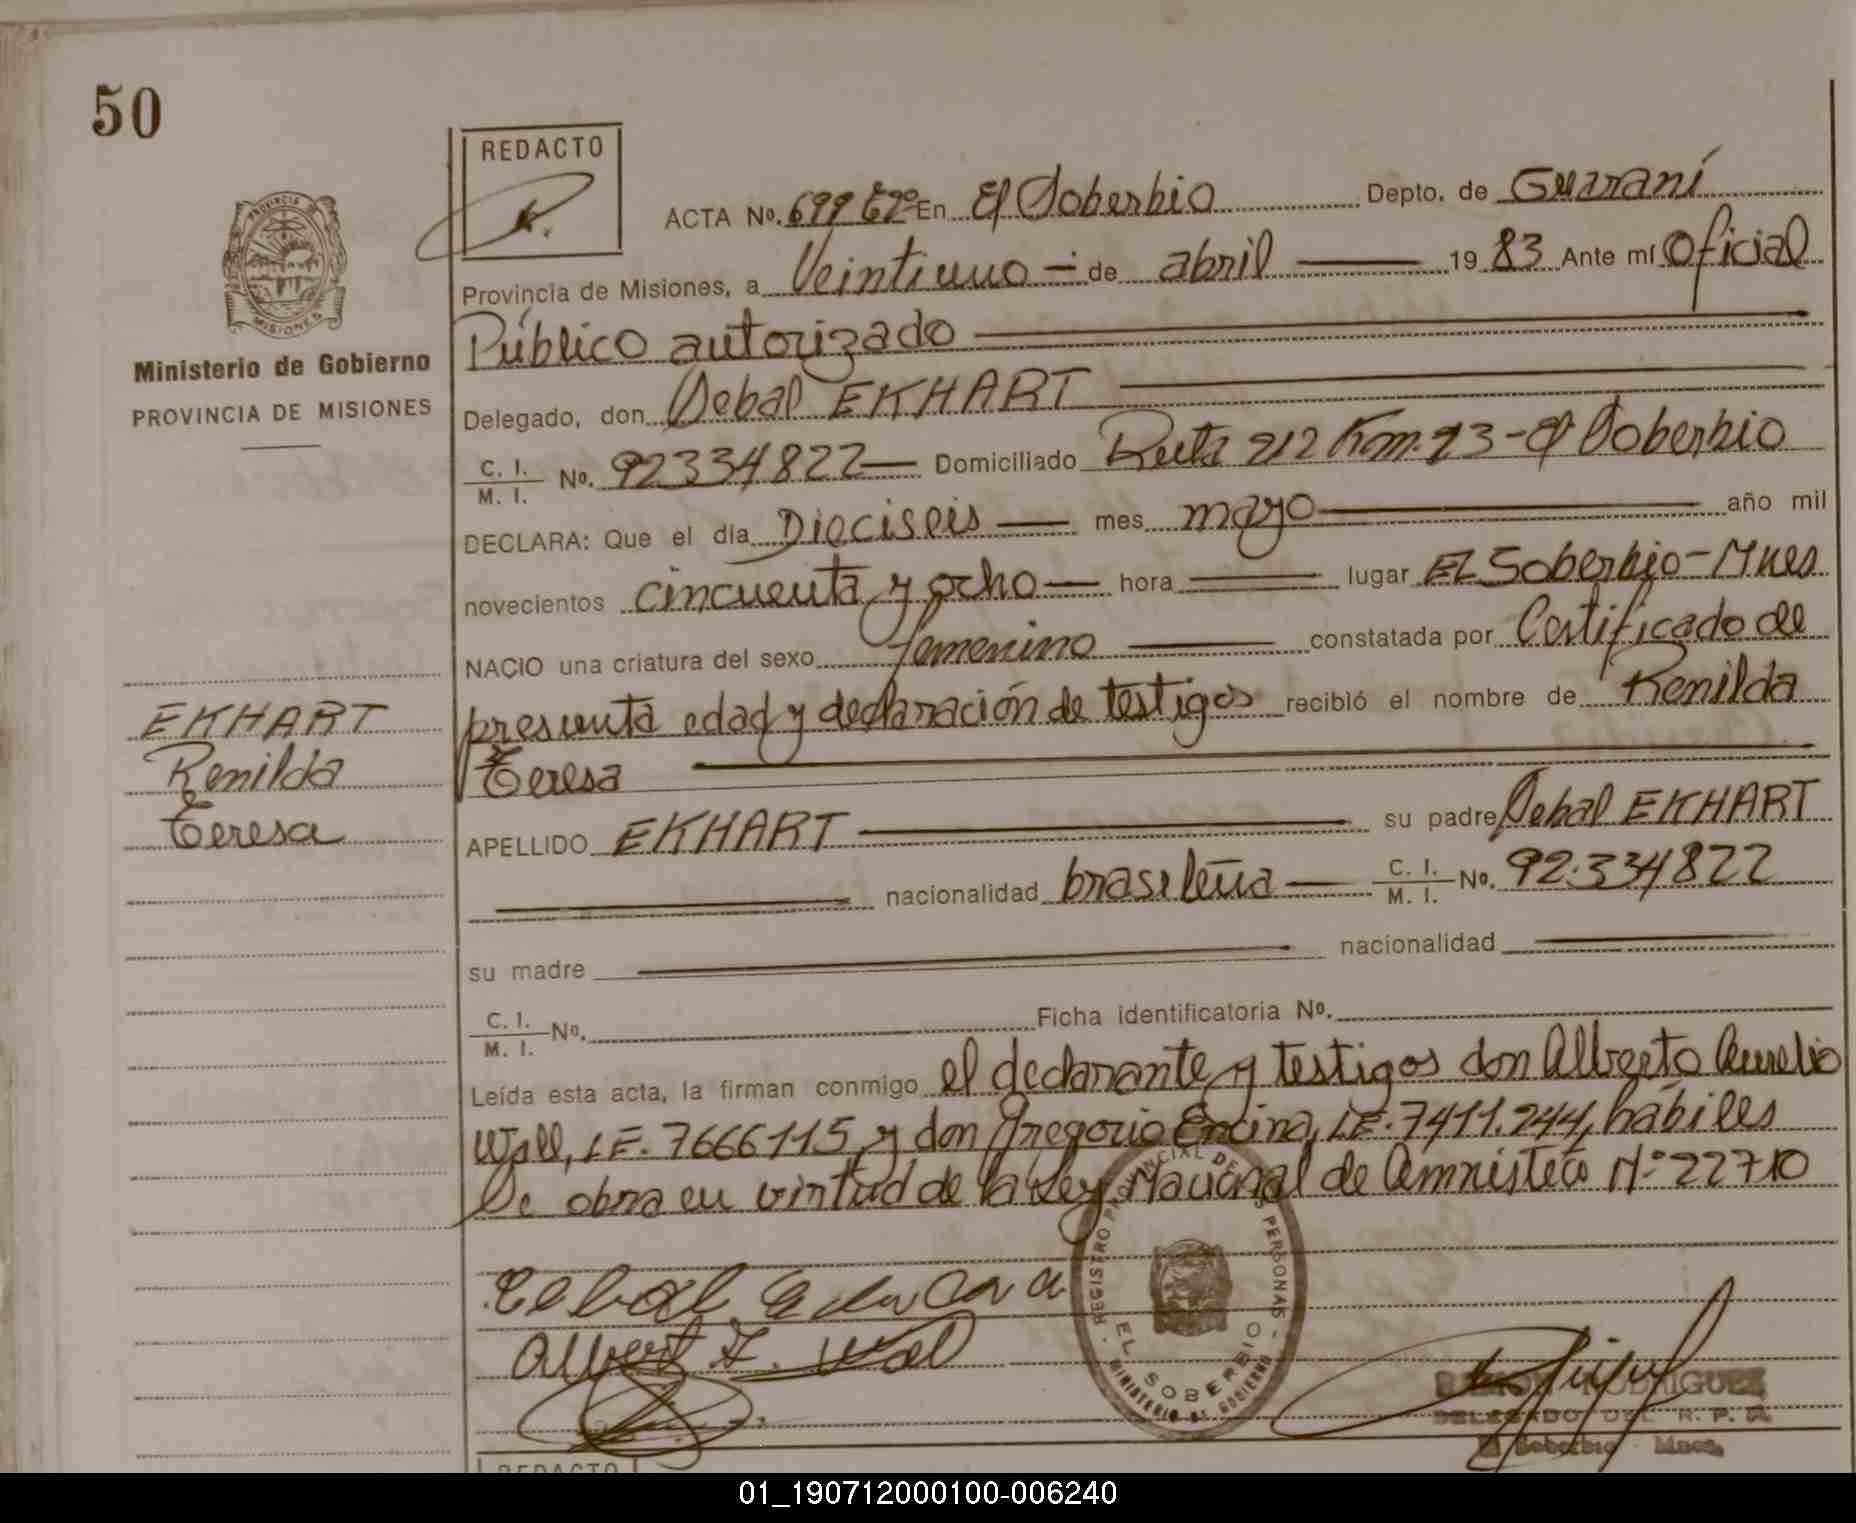 50
REDACTO
ACTA No. 699 Tº En El Soberbio Depto. de Guaraní
Provincia de Misiones, a Veintiuno — de abril — 19 83 Ante mí Oficial
Público autorizado
Ministerio de Gobierno
PROVINCIA DE MISIONES
Delegado, don Sebal EKHART
C. I. / M. I. No. 92334822 — Domiciliado Ruta 212 Km. 23 - El Soberbio
DECLARA: Que el día Dieciseis — mes mayo — año mil
novecientos cincuenta y ocho — hora — lugar EL Soberbio - Mnes
NACIO una criatura del sexo femenino — constatada por Certificado de
presunta edad y declaración de testigos recibió el nombre de Renilda
Teresa
EKHART
Renilda
Teresa
APELLIDO EKHART — su padre Sebal EKHART
— nacionalidad brasileña — C. I. / M. I. No. 92.334822
su madre — nacionalidad —
C. I. / M. I. No. Ficha identificatoria No.
Leída esta acta, la firman conmigo el declarante y testigos don Alberto Aurelio
Wall, LE. 7666115 y don Gregorio Encina, LE. 7411.244, hábiles
Se obra en virtud de la Ley Nacional de Amnistia Nº 22710
REGISTRO PROVINCIAL DE LAS PERSONAS
EL SOBERBIO
MINISTERIO DE GOBIERNO
Albert Z. Wal
RODRIGUEZ
DELEGADO DEL R. P. P.
El Soberbio - Mnes.
REDACTO
01_190712000100-006240